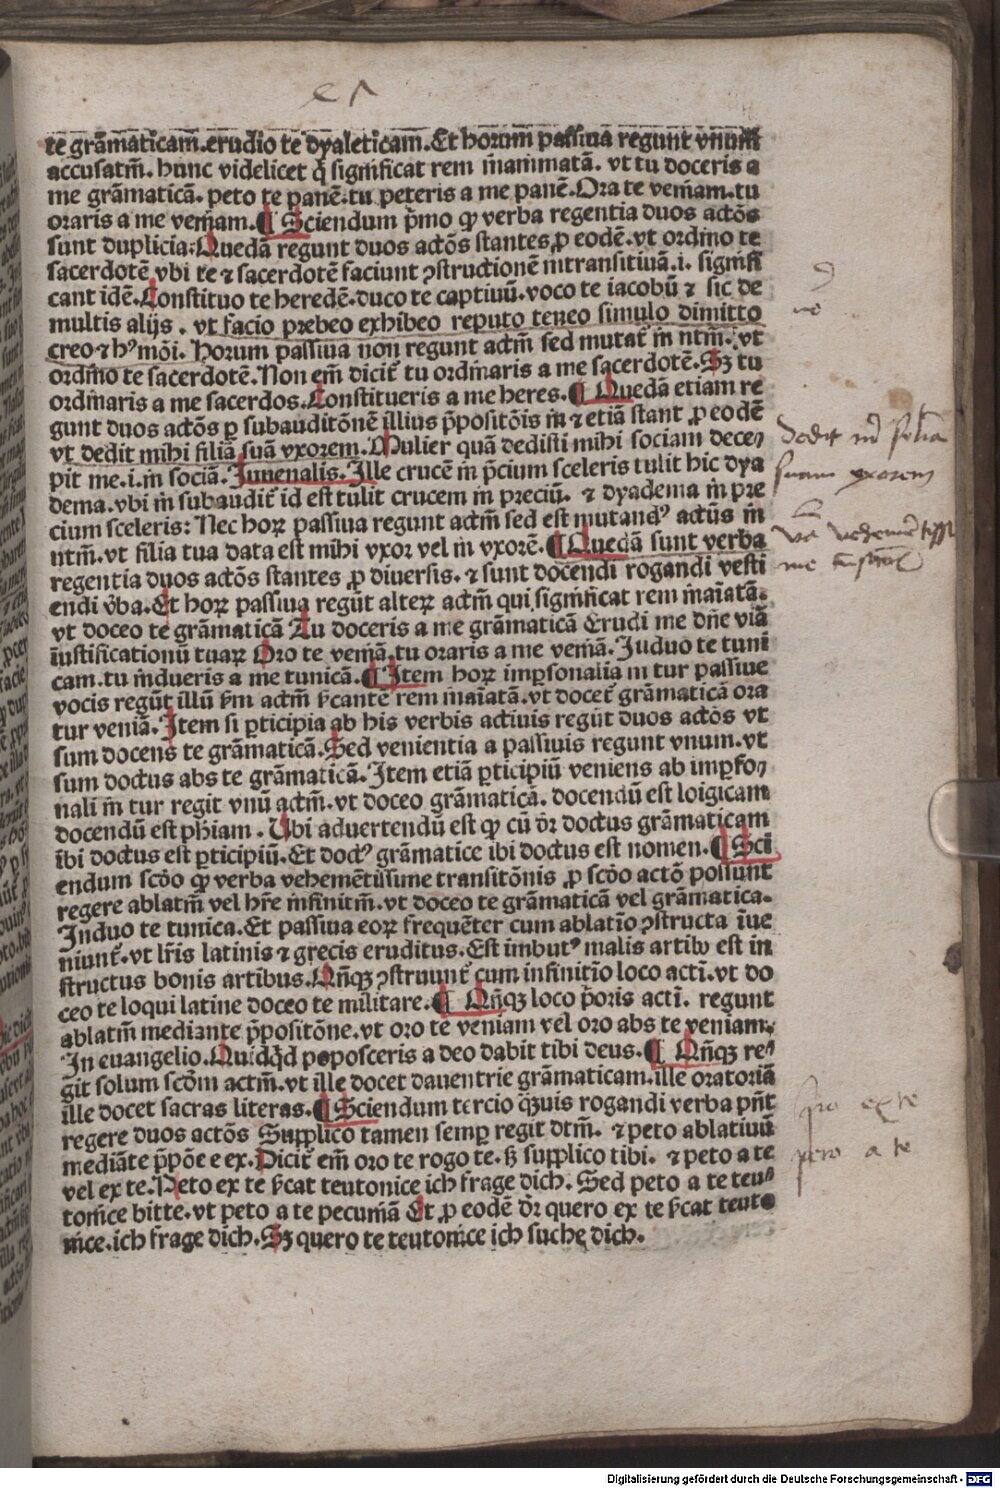 te grãmaticam̃.erudio te dyaleticam̃.Et horum passiua regunt vnum
accusatm̃. hunc videlicet q̃ significat rem inanimatã. vt tu doceris a
me grãmaticã. peto te panẽ.tu peteris a me panẽ.Ora te veniam.tu
oraris a me veniam.¶ Sciendum p̃mo ꝙ verba regentia duos actõs
sunt duplicia.Quedã regunt duos actõs stantes ꝓ eodẽ.vt ordino te
sacerdotẽ vbi te ⁊ sacerdotẽ faciunt ꝯstructionẽ intransitiuã.i. signifi
cant idẽ.Constituo te heredẽ.duco te captiuũ.voco te iacobũ ⁊ sic de
multis alijs . vt facio prebeo exhibeo reputo teneo simulo dimitto
creo ⁊ hꝰ mõi. Horum passiua non regunt actm̃ sed mutat̃ in ntm̃. vt
ordino te sacerdotẽ.Non em̃ dicit̃ tu ordinaris a me sacerdotẽ.Sꝫ tu
ordinaris a me sacerdos.Constitueris a me heres.¶ Quedã etiam re
gunt duos actõs ꝑ subauditõnẽ illius p̃positõis in ⁊ etiã stant ꝓ eodẽ
vt dedit mihi filiã suã vxorem.Mulier quã dedisti mihi sociam dece⸗
pit me.i.in sociã.Iuuenalis.Ille crucẽ in p̃cium sceleris tulit hic dya
dema.vbi in subaudit̃ id est tulit crucem in preciũ. ⁊ dyadema in pre
cium sceleris: Nec hoꝝ passiua regunt actm̃ sed est mutandꝰ actũs in
ntm̃. vt filia tua data est mihi vxor vel in vxorẽ.¶Quedã sunt verba
regentia duos actõs stantes ꝓ diuersis. ⁊ sunt docendi rogandi vesti
endi v̾ba.Et hoꝝ passiua regũt alteꝝ actm̃ qui significat rem inaĩatã.
vt doceo te grãmaticã Tu doceris a me grãmaticã Erudi me dñe viã
iustificationũ tuaꝝ Oro te veniã.tu oraris a me veniã.Induo te tuni
cam.tu indueris a me tunicã.¶Item hoꝝ imp̱sonalia in tur passiue
vocis regũt illũ s̃m actm̃ s̃cantẽ rem inaĩatã.vt docet̃ grãmaticã ora
tur veniã.Item si ꝑticipia ab his verbis actiuis regũt duos actõs vt
sum docens te grãmaticã.Sed venientia a passiuis regunt vnum.vt
sum doctus abs te grãmaticã.Item etiã ꝑticipiũ veniens ab imꝑso⸗
nali in tur regit vnũ actm̃.vt doceo grãmaticã. docendũ est loigicam
docendũ est ph̃iam . Ubi aduertendũ est ꝙ cũ dr̃ doctus grãmaticam
ibi doctus est ꝑticipiũ.Et doctꝰ grãmatice ibi doctus est nomen.¶Sci
endum scðo ꝙ verba vehemẽtissime transitõnis ꝓ scðo actõ possunt
regere ablatm̃ vel hr̃e infinitm̃.vt doceo te grãmaticã vel grãmatica.
Induo te tunica.Et passiua eoꝝ frequẽter cum ablatĩo ꝯstructa inue
niunt̃.vt lr̃is latinis ⁊ grecis eruditus.Est imbutꝰ malis artibꝰ est in
structus bonis artibus.Qñqꝫ ꝯstruunt̃ cum infinitĩo loco acti.vt do
ceo te loqui latine doceo te militare.¶ Qñqꝫ loco p̃oris acti. regunt
ablatm̃ mediante p̃positõne.vt oro te veniam vel oro abs te veniam.
In euangelio.Quidq̃d poposceris a deo dabit tibi deus.¶ Qñqꝫ re⸗
git solum scðm actm̃.vt ille docet dauentrie grãmaticam.ille oratoriã
ille docet sacras literas.¶Sciendum tercio q̃uis rogandi verba pñt
regere duos actõs Supplico tamen semꝑ regit dtm̃. ⁊ peto ablatiuũ
mediãte p̃põe e ex.Dicit̃ em̃ oro te rogo te.ß supplico tibi. ⁊ peto a te
vel ex te.Peto ex te s̃cat teutonice ich frage dich. Sed peto a te teu⸗
tonice bitte.vt peto a te pecuniã Et ꝓ eodẽ dr̃ quero ex te s̃cat teuto
nice.ich frage dich.Sꝫ quero te teutonice ich suche dich.
dedit m̃ filiã
suam vxorem
pro ex te
peto a te
Digitalisierung gefördert durch die Deutsche Forschungsgemeinschaft - DFG